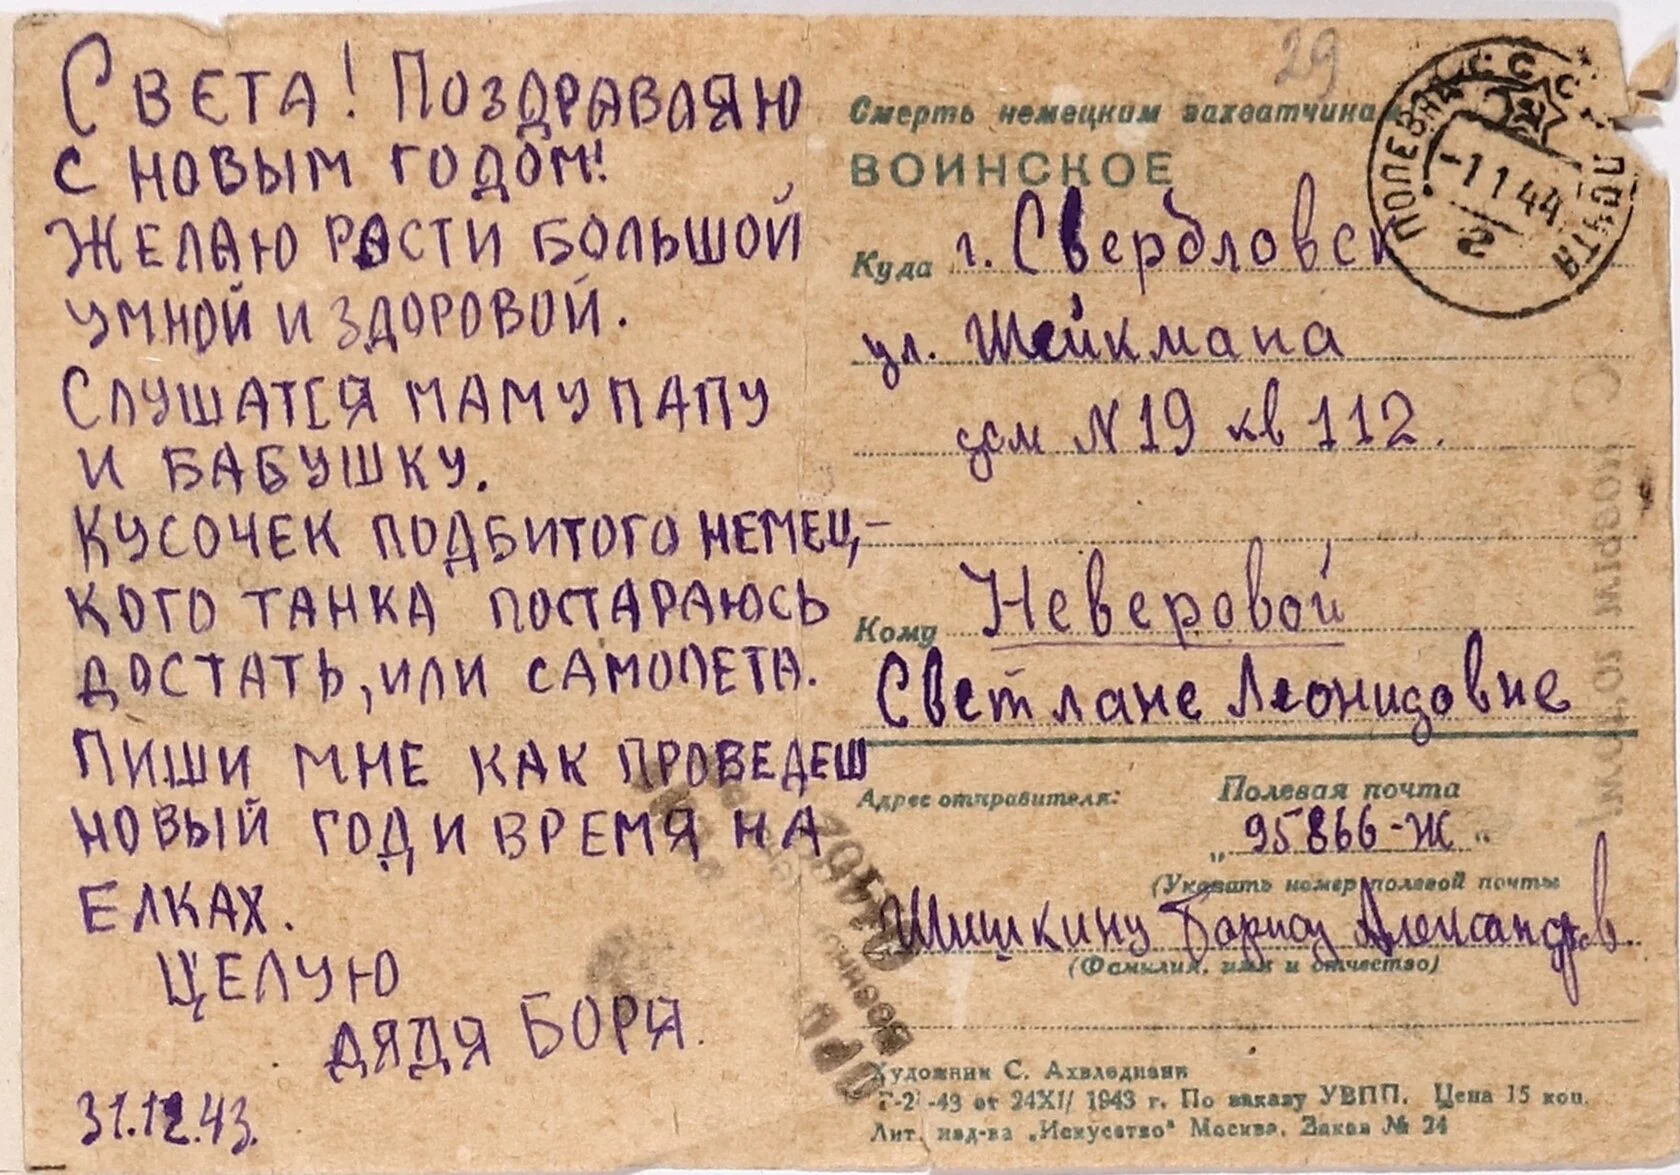 СВЕТА! ПОЗДРАВЛЯЮ
С НОВЫМ ГОДОМ!
ЖЕЛАЮ РАСТИ БОЛЬШОЙ
УМНОЙ И ЗДОРОВОЙ.
СЛУШАТСЯ МАМУ ПАПУ
И БАБУШКУ.
КУСОЧЕК ПОДБИТОГО НЕМЕЦ-
КОГО ТАНКА ПОСТАРАЮСЬ
ДОСТАТЬ, ИЛИ САМОЛЕТА.
ПИШИ МНЕ КАК ПРОВЕДЕШ
НОВЫЙ ГОД И ВРЕМЯ НА
ЕЛКАХ.
ЦЕЛУЮ
ДЯДЯ БОРЯ.
31.12.43.
29
Смерть немецким захватчикам
ВОИНСКОЕ
СССР
ПОЧТА
-1 1 44
2
Куда г. Свердловск
ул. Шейкмана
дом N 19 кв 112.
Кому Неверовой
Светлане Леонидовне
Адрес отправителя: Полевая почта
"95866-Ж"
(Указать номер полевой почты
Шишкину Борису Александров.
(Фамилия, имя и отчество)
Художник С. Ахвледиани
Г-2 -43 от 24XII 1943 г. По заказу УВПП. Цена 15 коп.
Лит. изд-ва „Искусство" Москва. Заказ № 24